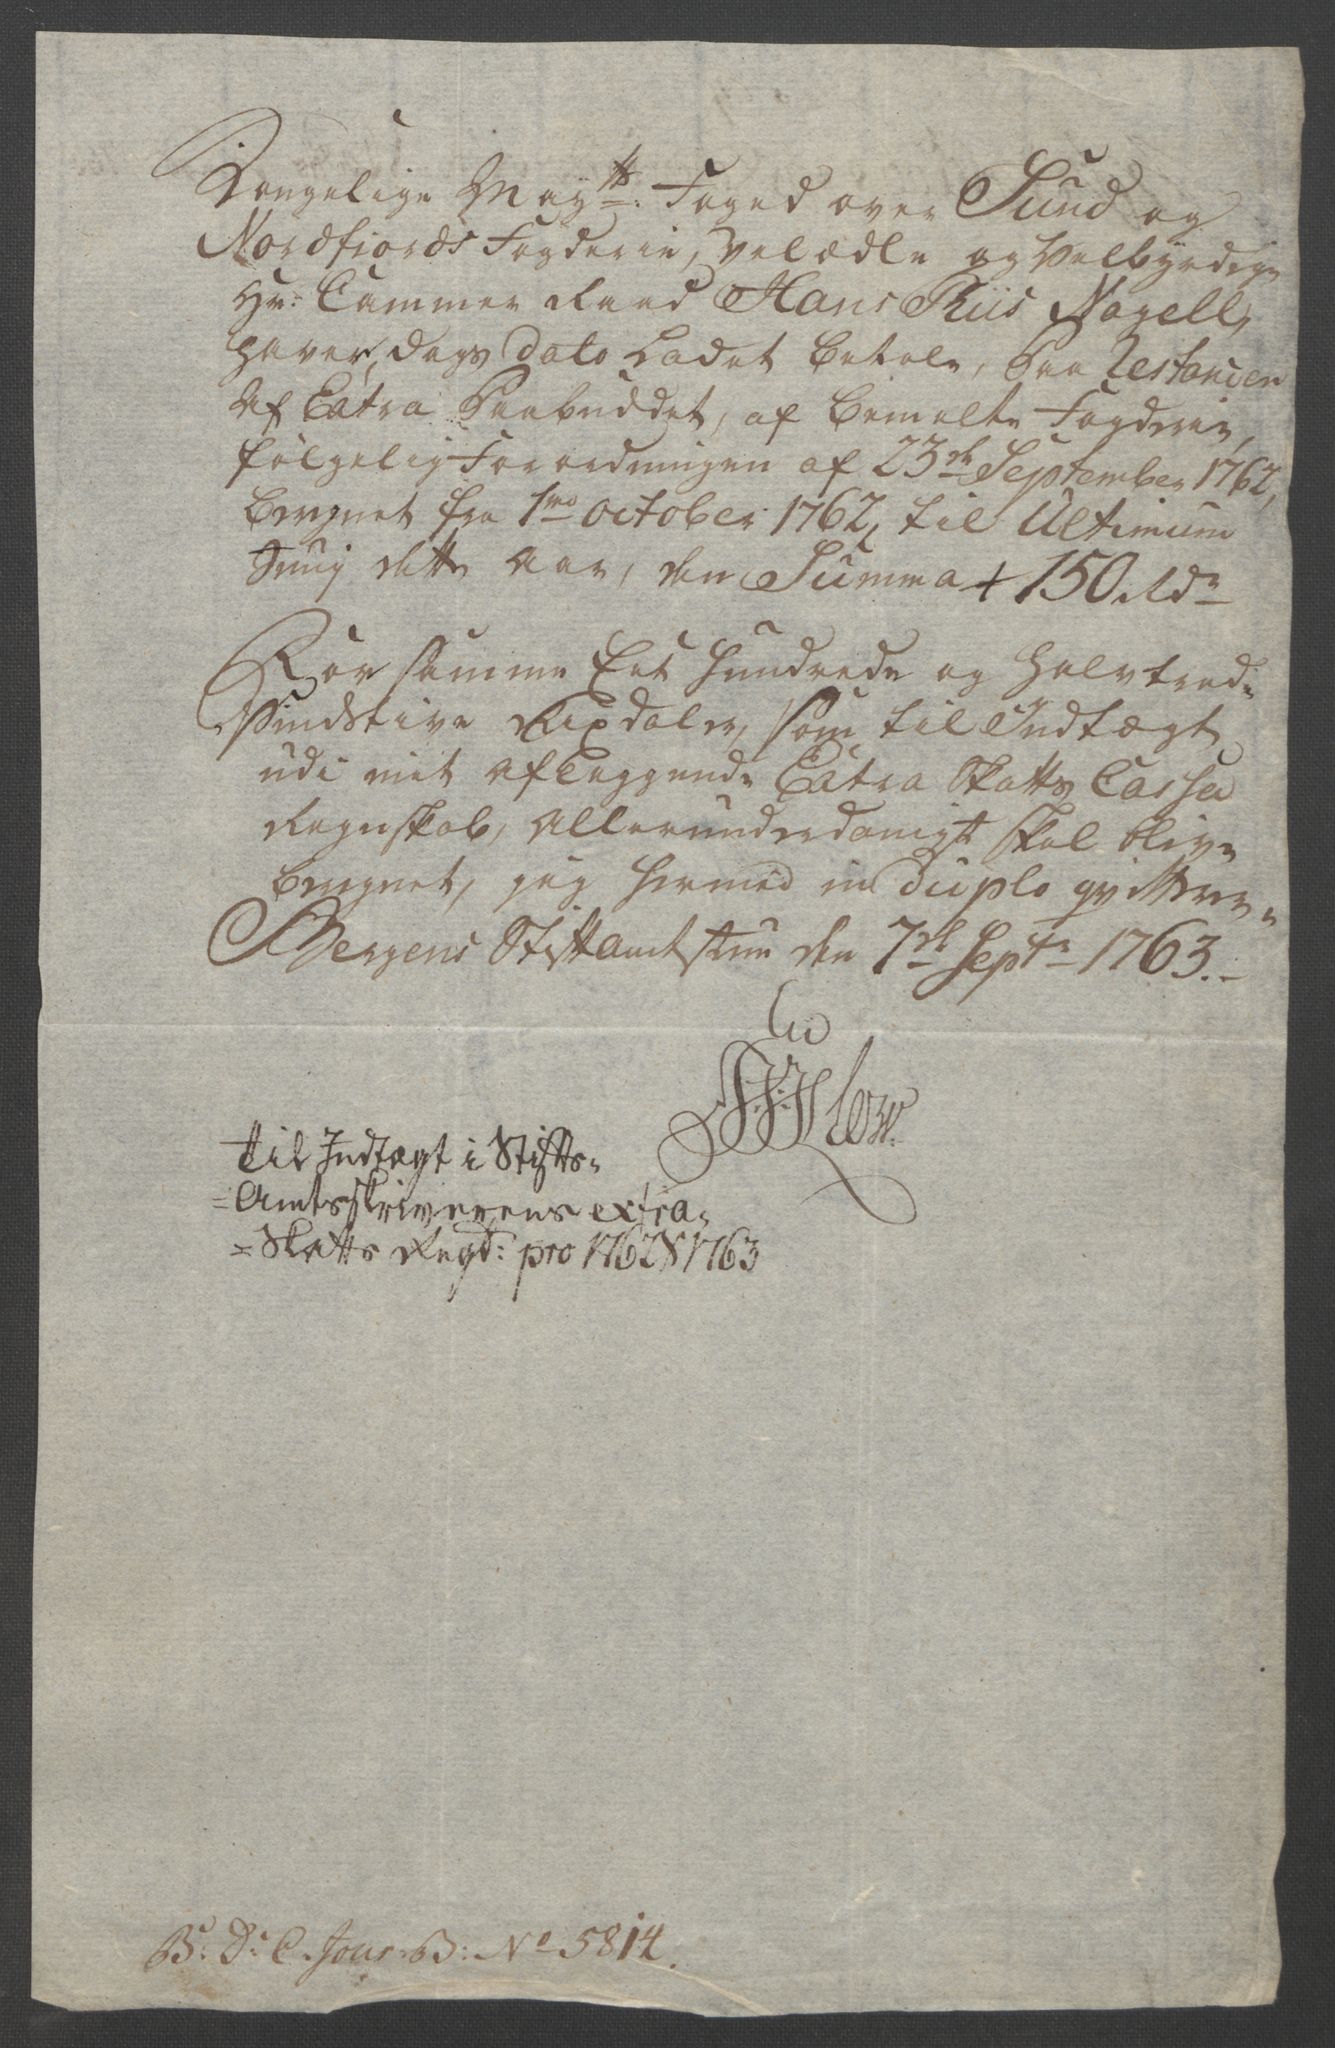 Kongelige May:tts Foged over Sund og
Nordfiords Fogderie, Velædle og Velbyrdige
Hr: Cammer Raad Hans Riis Nagell,
haver, dags dato Ladet betale, paa Restancen
af Extra Paabuddet, af bemelte Fogderie,
følgelig Forordningen af 23de September 1762,
beregnet fra 1mo October 1762, til Ultimum
Junij dette Aar, den Summa + 150 Rdr
For samme Eet Hundrede og Halvtred-
sindstive Rixdaler, som til Indtægt
udi mit aflæggende Extra Skatts Cassa
Regnskab, allerunderdanigst skal blive
beregnet, jeg hermed in duplo qvitterer
Bergens Stiftamtstue den 7de Septr 1763.-
Til Indtægt i Stifts-
=Amtsskriverens extra-
=Skatts Regd: pro 1762 & 1763
B: D: C. Jour: B: No 5814.